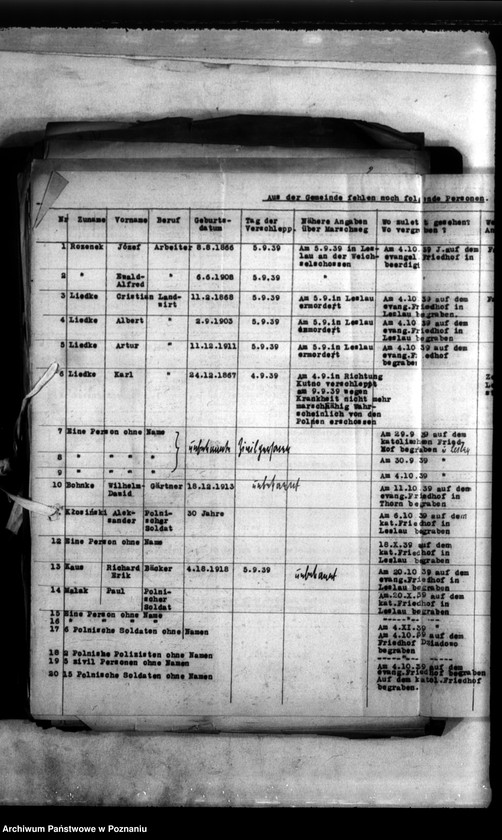 Aus der Gemeinde fehlen noch folgende Personen.
Nr Zuname Vorname Beruf Geburts-datum Tag der Verschlepp. Nähere Angaben über Marschweg Wo zuletzt gesehen? Wo vergraben?
1 Rozenek Józef Arbeiter 8.8.1866 5.9.39 Am 5.9.39 in Les-
lau an der Weich-
selschossen
Am 4.10.39 auf
evangel Friedhof in
beerdigt
2 " Ewald-
Alfred " 6.6.1908 5.9.39 "
3 Liedke Cristian Land-
wirt 11.2.1868 5.9.39 Am 5.9.in Leslau
ermordert
Am 4.10.39 auf dem
evang.Friedhof in
Leslau begraben.
4 Liedke Albert " 2.9.1903 5.9.39 Am 5.9.in Leslau
ermordert
Am 4.10.39 auf dem
evang.Friedhof in
Leslau begraben
5 Liedke Artur " 11.12.1911 5.9.39 Am 5.9.in Leslau
ermordert
Am 4.10.39 auf dem
evang.Friedhof
begraben
6 Liedke Karl " 24.12.1867 4.9.39 Am 4.9.in Richtung
Kutno verschleppt
am 9.9.39 wegen
Krankheit nicht mehr
marschfähig Wahr-
scheinlich von den
Polen erschossen
7 Eine Person ohne Name
Am 29.9.39 auf dem
katolischen Fried-
Hof begraben
8 " " " " Am 30.9.39 "
9 " " " " Am 4.10.39 "
10 Bohnke Wilhelm-
Dawid Gärtner 18.12.1913 unbekannt
Am 11.10.39 auf dem
evang.Friedhof in
Thorn begraben
Kłosiński Alek-
sander Polni-
scher
Soldat 30 Jahre
Am 6.10.39 auf dem
kat.Friedhof in
Leslau begraben
12 Eine Person ohne Name
18.X.39 auf dem
kat.Friedhof in
Leslau begraben
13 Kaus Richard
Erik Bäcker 4.18.1918 5.9.39 unbekannt
Am 20.10.39 auf dem
evang.Friedhof in
Leslau begraben
14 Malek Paul Polni-
scher
Soldat
Am.20.X.39 auf dem
kat.Friedhof in
Leslau begraben
15 Eine Person ohne Name
16 " " " " Am 4.XI.39 "
17 6 Polnische Soldaten ohne Namen
Am 4.10.39 auf dem
Friedhof
begraben
18 2 Polnische Polizisten ohne Namen
19 3 zivil Personen ohne Namen
Am 4.10.39 auf dem
evang.Friedhof begraben
20 15 Polnische Soldaten ohne Namen
Auf dem katol.Friedhof
begraben.
Archiwum Państwowe w Poznaniu